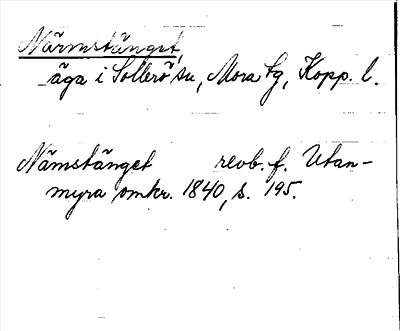 Närmstänget,
äga i Sollerö sn, Mora tg, Kopp. l.
Nämstänget revb. f. Utan-
myra omkr. 1840, s. 195.